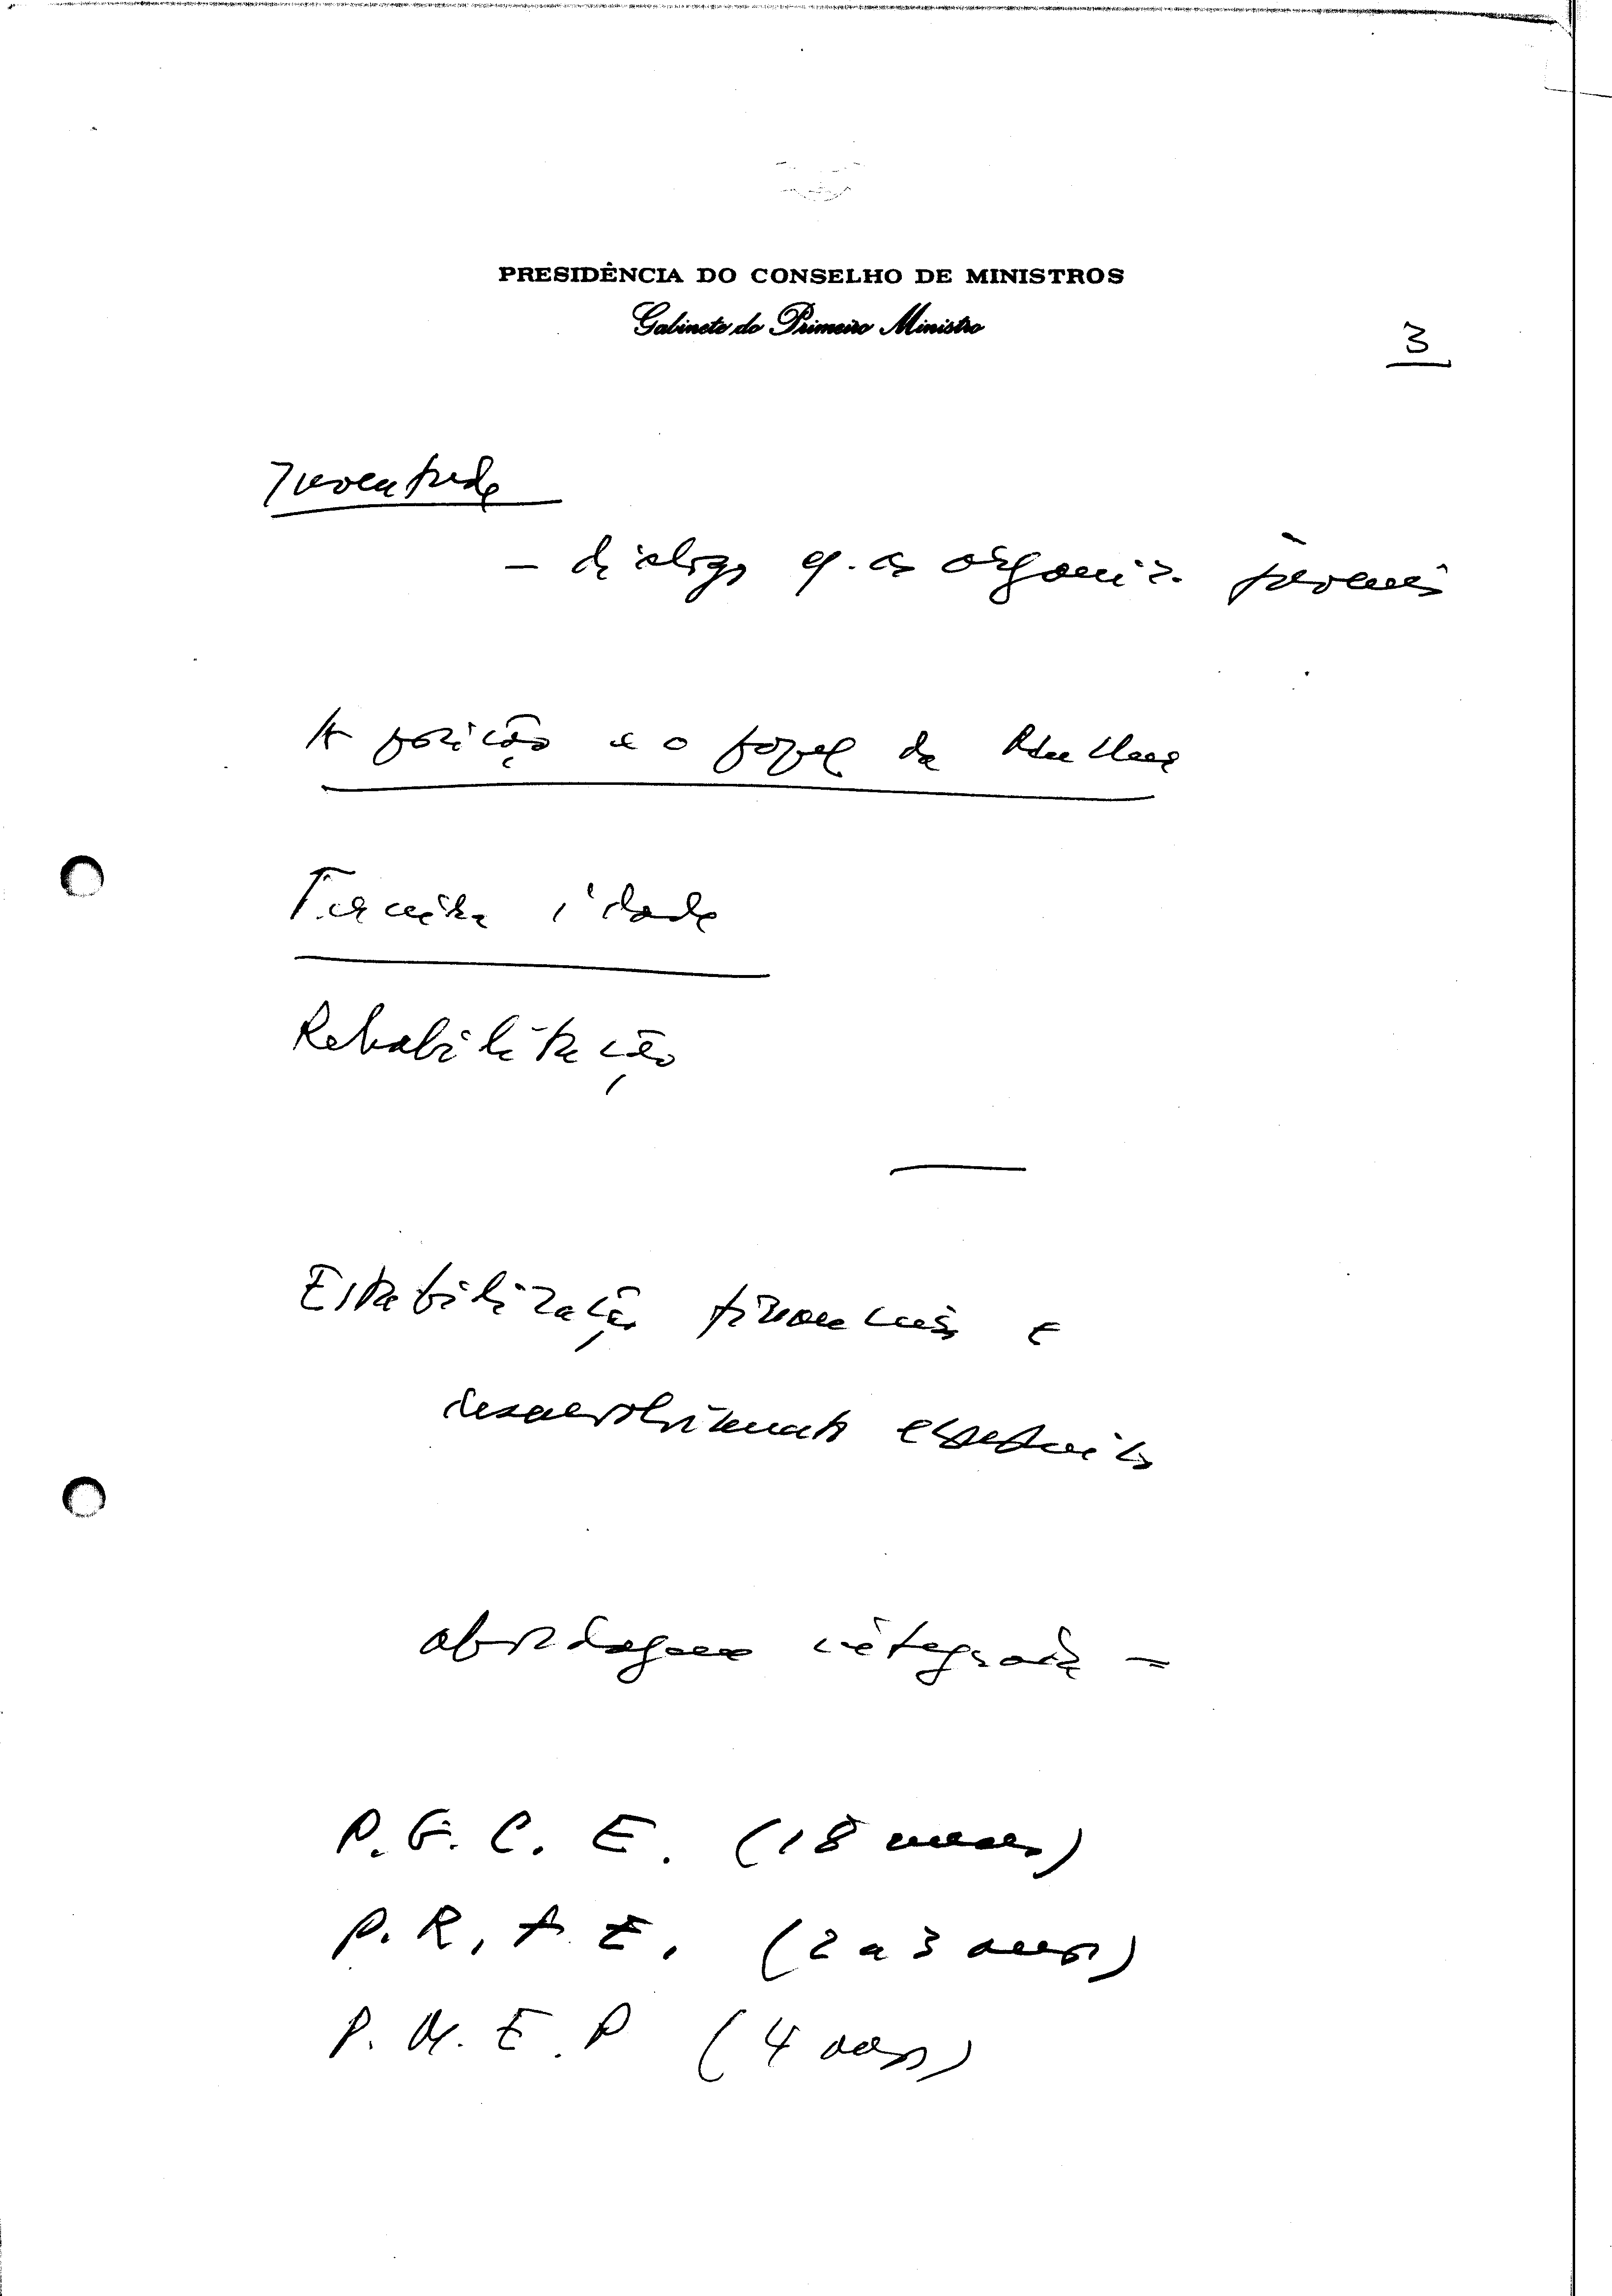 PRESIDÊNCIA DO CONSELHO DE MINISTROS
Gabinete do Primeiro Ministro
3
Juventude
- dialogo c/. as organiz. juvenis
A posição e o papel da Mulher
Terceira idade
Rehabilitação
Estabilização financeira e
desenvolvimento económico
abordagem integrada -
P. G. C. E. (18 meses)
P. R. F. E. (2 a 3 anos)
P. M. E. P (4 anos)